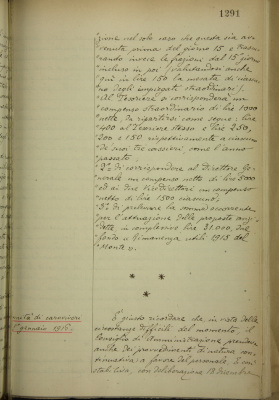 1291
zione nel solo caso che questa sia av-
venuta prima del giorno 15 e trascu-
rando invece le frazioni dal 15 giorno
incluso in poi (valutandosi anche
qui in lire 150 la mensilità di ciascu-
no degli impiegati straordinari).
"Al Tesoriere si corrisponderà un
"compenso straordinario di lire 1000
"nette da ripartirsi come segue: lire
"400 al Tesoriere stesso e lire 250,
"200 e 150 rispettivamente a ciascuno
"dei suoi tre cassieri come l'anno
"passato
"2° di corrispondere al Direttore Ge-
"nerale un compenso netto di lire 5000
"ed ai due Vicedirettori un compenso
"netto di lire 1500 ciascuno;
"3° di prelevare la somma occorrente
"per l'attuazione delle proposte sud-
"dette in complessive lire 31.000 dal
"fondo a rimanenza utili 1915 del
"Monte".
*
* *
indennità di caroviveri
1° gennaio 1916.
È giusto ricordare che, in vista delle
circostanze difficili del momento, il
Consiglio di Amministrazione prendeva
anche dei provvedimenti di natura con-
tinuativa a favore del personale. E così
stabiliva, con deliberazione 13 dicembre